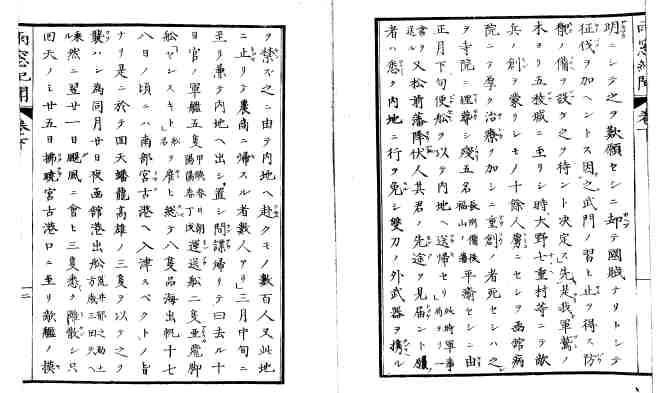 明ニシテ之ヲ歎願セシニ却テ國賊ナリトシテ
征伐ヲ加ヘントス因之武門ノ習ヒ止ヲ得ス防
禦ノ備ヲ設ケ之ヲ待ント決定ス先是我軍鷲ノ
木ヨリ五稜郭ニ至リシ時大野七重村等ニテ敵
兵ノ創ヲ蒙リシモノ十餘人虜ニセシヲ函館病
院ニテ厚ク治療ヲ加シニ重創ノ者死セシハ之
ヲ寺院ニ埋葬シ残五名平癒セシニ由
正月下旬便舩ヲ以テ内地ヘ送帰セリ
書ヲ送ル又松前藩降伏人其君ノ先途ヲ見届ント願
者ハ悉ク内地ニ行ヲ免シ雙刀ノ外武器ヲ携ル
ヲ禁ズ之ニ由テ内地ヘ赴クモノ數百人又此地
ニ止リテ農商ニ帰スル者數人アリ三月中旬ニ
至リ兼テ内地ヘ出シ置シ間諜帰リテ曰去ル十
日官ノ軍艦五隻甲鐵春日朝陽陽春丁戊運送舩二隻並飛脚
舩ヤンスキト舩名ヲ雇ヒ総テ八隻品海出帆十七
八日ノ頃ニハ南部宮古港ヘ入津スベクトノ旨
ナリ是ニ於テ回天蟠龍高雄ノ三隻ヲ以テ之ヲ
襲ハン為同月廿日夜函館港出舩荒井郁之助土方歳三田矢ヘ
乗然ニ翌廿一日颶風ニ會ヒ三隻悉ク離散シ只
回天ノミ廿五日拂曉宮古港口ニ至リ敵艦ノ模
雨窓紀聞 巻下
二